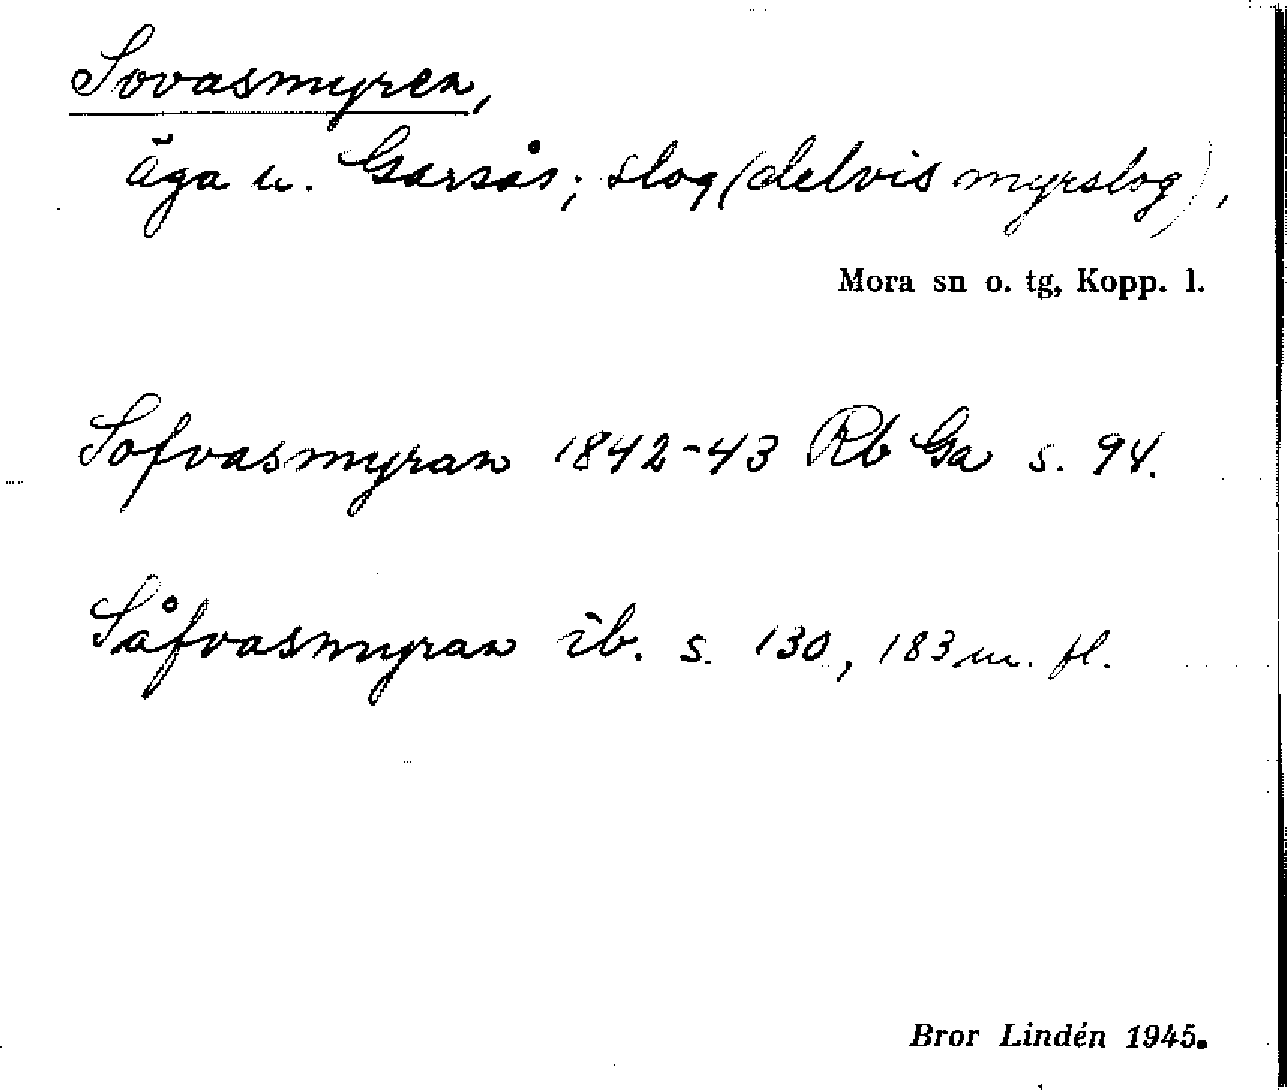 Sovasmyren,
äga u. Garsås; slog (delvis myrslog),
Mora sn o. tg, Kopp. l.
Sofvasmyran 1842-43 Rb Ga s. 94.
Såfvasmyran ib. s. 130, 183 m. fl.
Bror Lindén 1945.